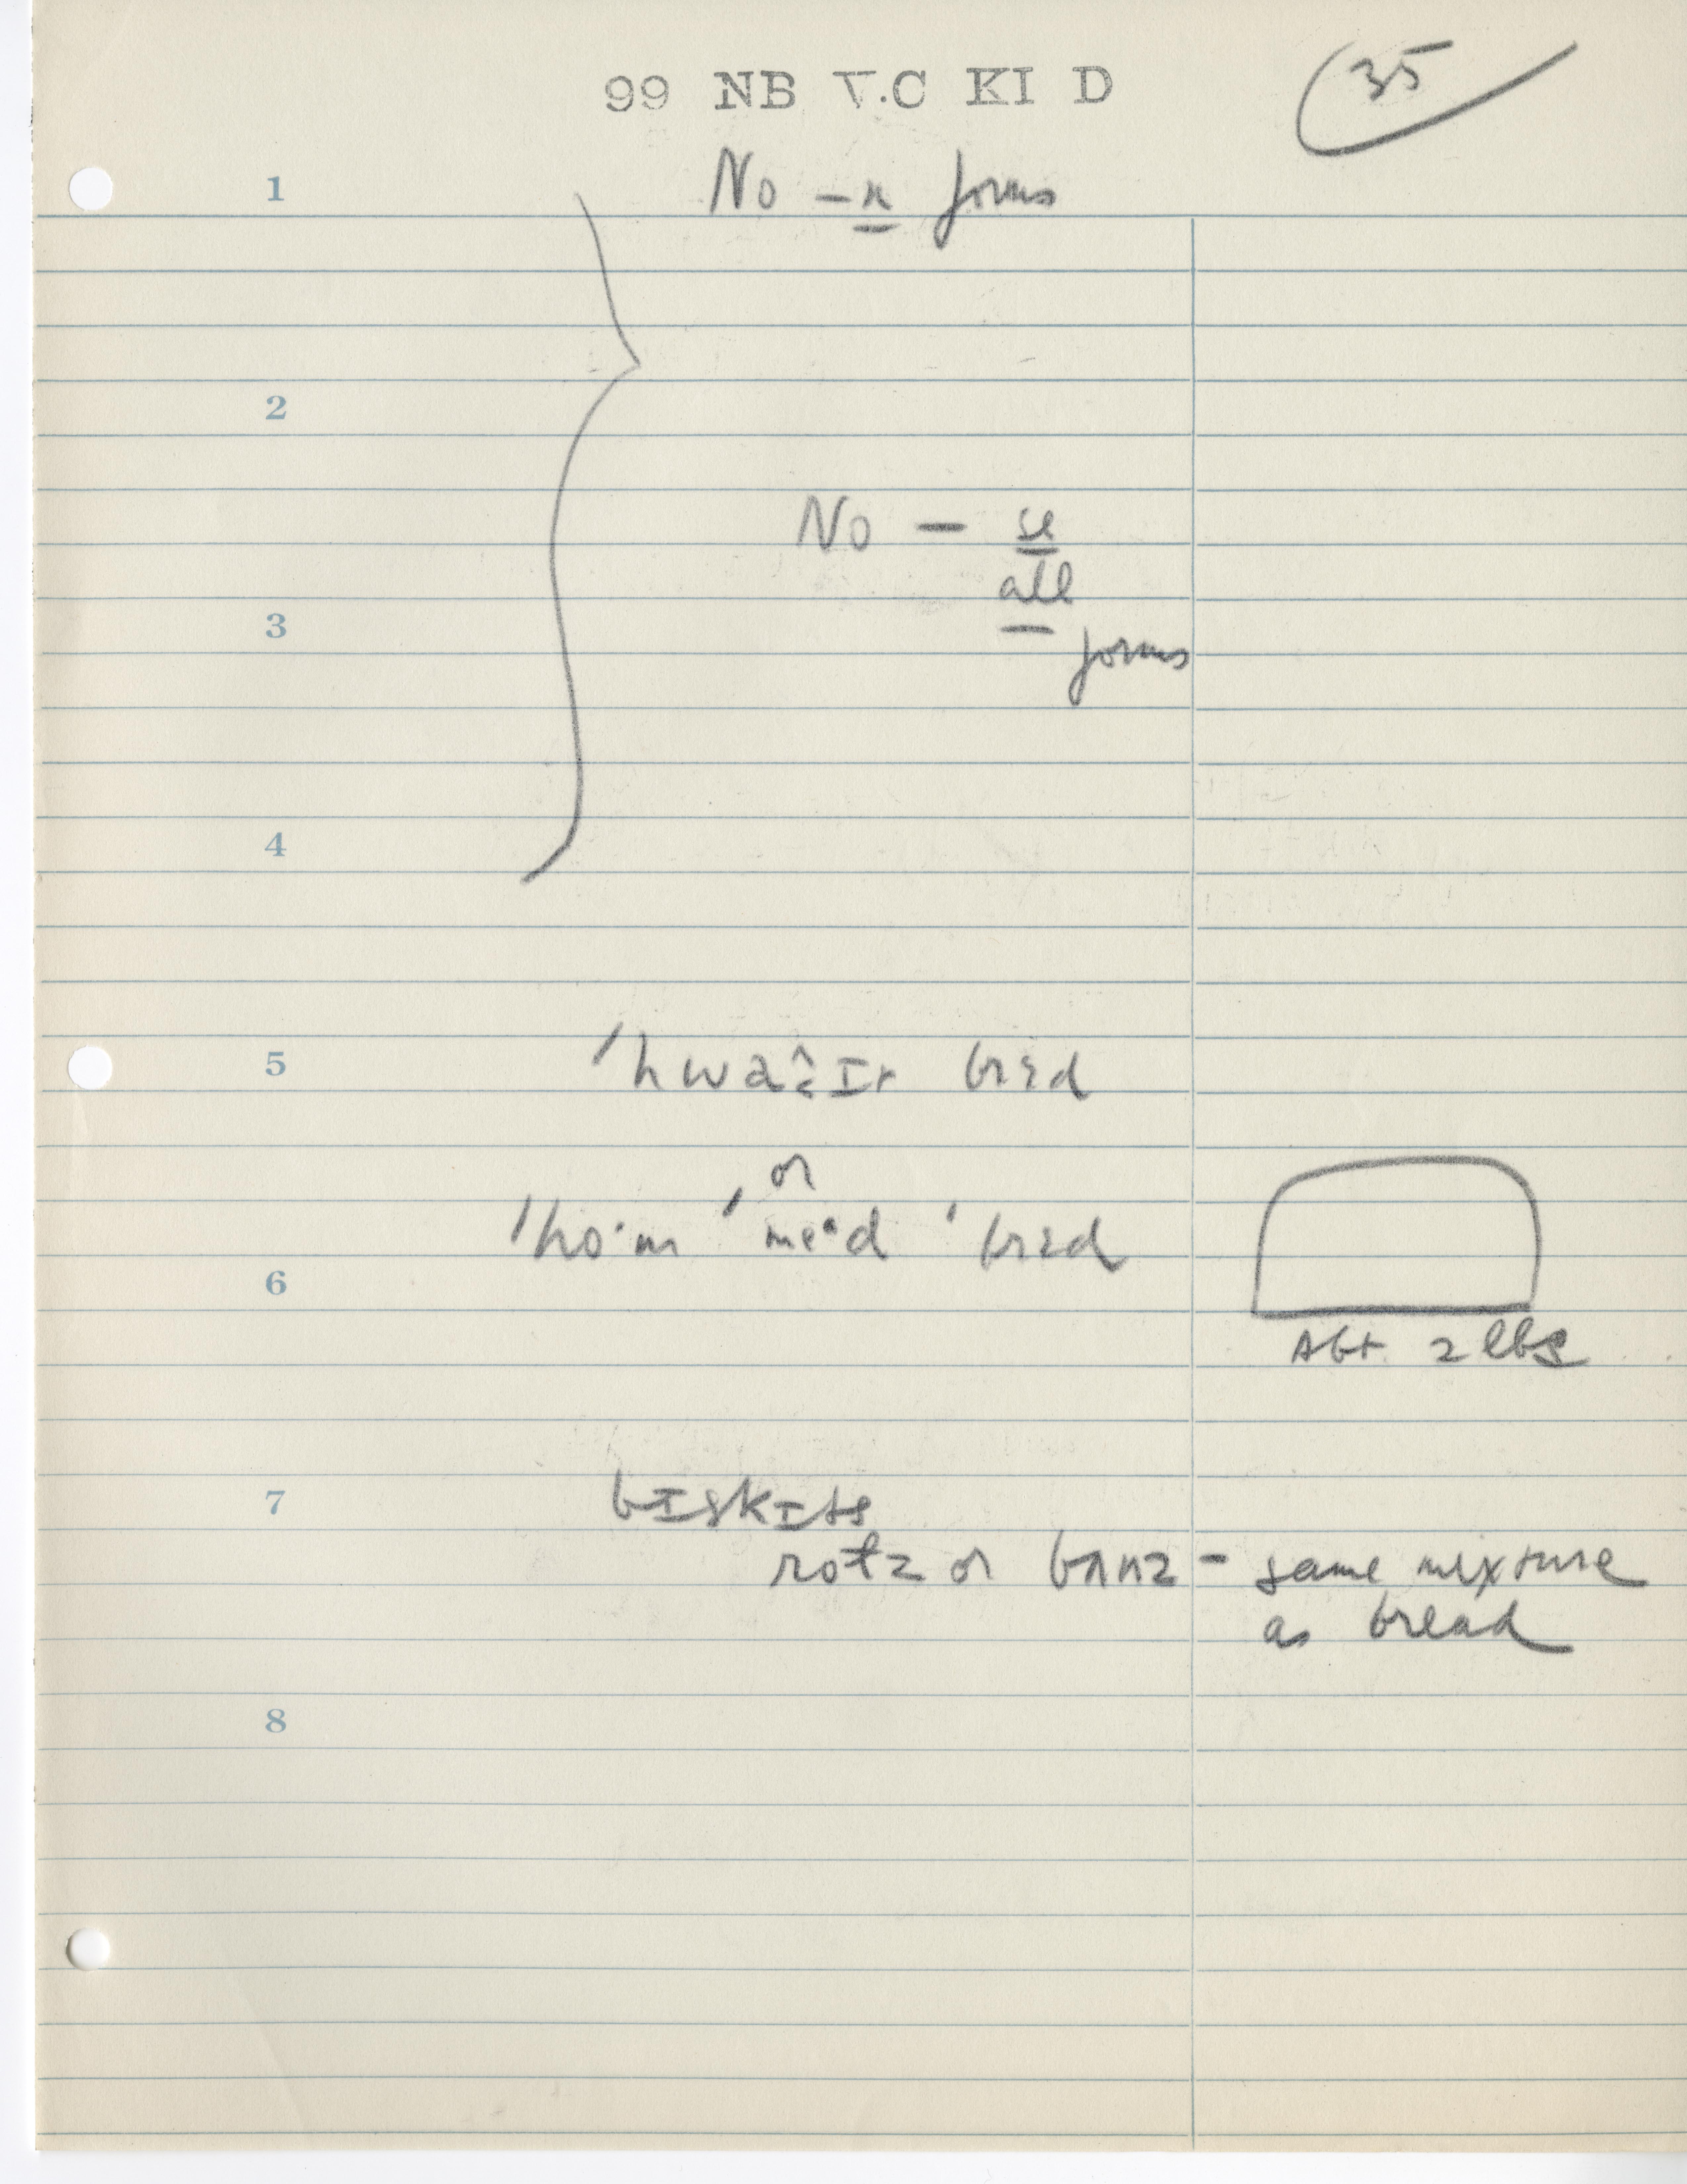 99 NB V.C KI D
35
1
No -n forms
2
No - se
all
3
forms
4
5
bred
or
'ho·m 'me·d 'bred
6
Abt 2 lbs
7
bɪskɪts
rolz or bʌnz - same mixture
as bread
8